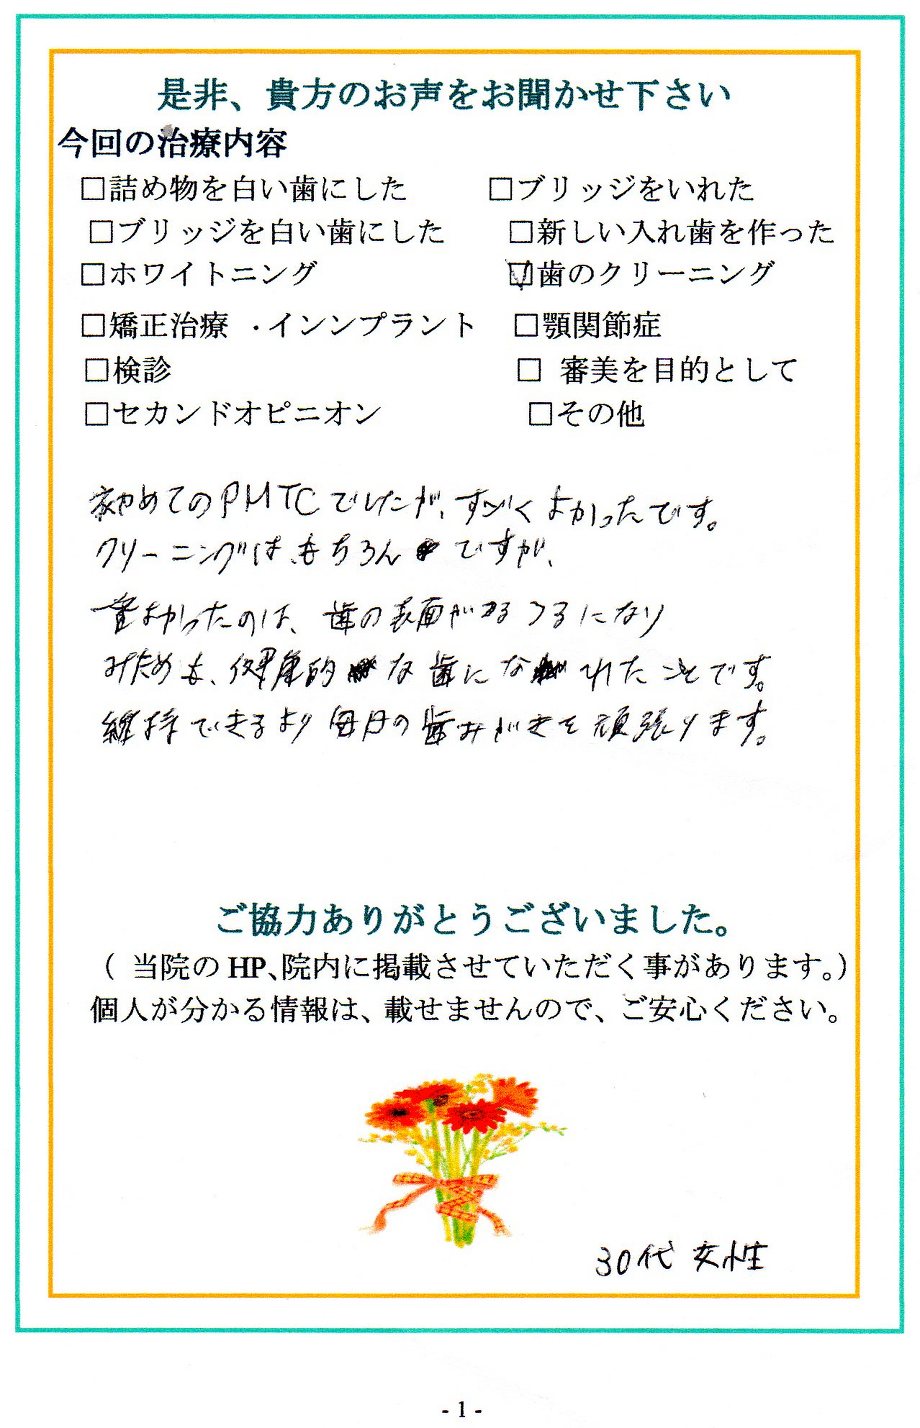 是非、貴方のお声をお聞かせ下さい
今回の治療内容
□詰め物を白い歯にした □ブリッジをいれた
□ブリッジを白い歯にした □新しい入れ歯を作った
□ホワイトニング ☑歯のクリーニング
□矯正治療 ・インンプラント □顎関節症
□検診 □ 審美を目的として
□セカンドオピニオン □その他
初めてのPMTCでしたが、すごくよかったです。
クリーニングはもちろんですが、
一番よかったのは、歯の表面がつるつるになり
みためも、健康的な歯になれたことです。
維持できるよう毎日の歯みがきを頑張ります。
ご協力ありがとうございました。
( 当院のHP、院内に掲載させていただく事があります。)
個人が分かる情報は、載せませんので、ご安心ください。
30代 女性
- 1 -